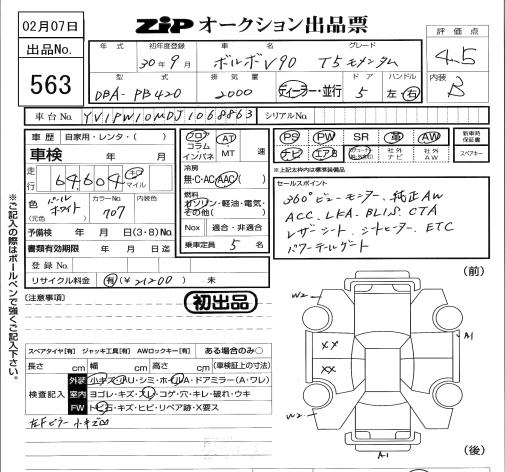 02月07日
ZIP オークション出品票
評価点
4.5
内装
B
出品No.
563
年式
初年度登録
車名
グレード
30年9月
ボルボV90
T5モメンタム
型式
排気量
ドア
ハンドル
DBA-PB420
2000
ディーラー・並行
5
左・右
車台No.
YV1PW10MDJ1068863
シリアルNo.
車歴
自家用・レンタ・( )
車検
年 月
走行
64,604
キロ
マイル
色
(元色)
パールホワイト
カラーNo.
707
内装色
予備検
年 月 日(3・8)
書類有効期限
年 月 日迄
登録No.
リサイクル料金
有(¥21200) 未
フロア
コラム
インパネ
AT
・
MT
速
冷房
無・C・AC・AAC( )
燃料
ガソリン・軽油・電気・
その他( )
Nox
適合・非適合
乗車定員
5名
PS
PW
SR
革
AW
ナビ
エアB
社外
ナビ
社外
AW
新車時
保証書
スペアキー
※記上太枠内は標準装備品
セールスポイント
360°ビューモニター、純正AW
ACC. LKA. BLIS. CTA
レザーシート シートヒーター ETC
パワーテールゲート
※ご記入の際はボールペンで強くご記入下さい。
(注意事項)
初出品
(前)
W2
A1
XX
XX
W2
A1
(後)
スペアタイヤ[有] ジャッキ工具[有] AWロックキー[有] ある場合のみ○
長さ cm 幅 cm 高さ cm (車検証上の寸法)
検査記入
外装
小キズ・AU・シミ・ホイルA・ドアミラー(A・ワレ)
室内
ヨゴレ・キズ・スレ・コゲ・穴・キレ・破れ・ウキ
FW
トビ石・キズ・ヒビ・リペア跡・X要ス
左Fピラー小キズ